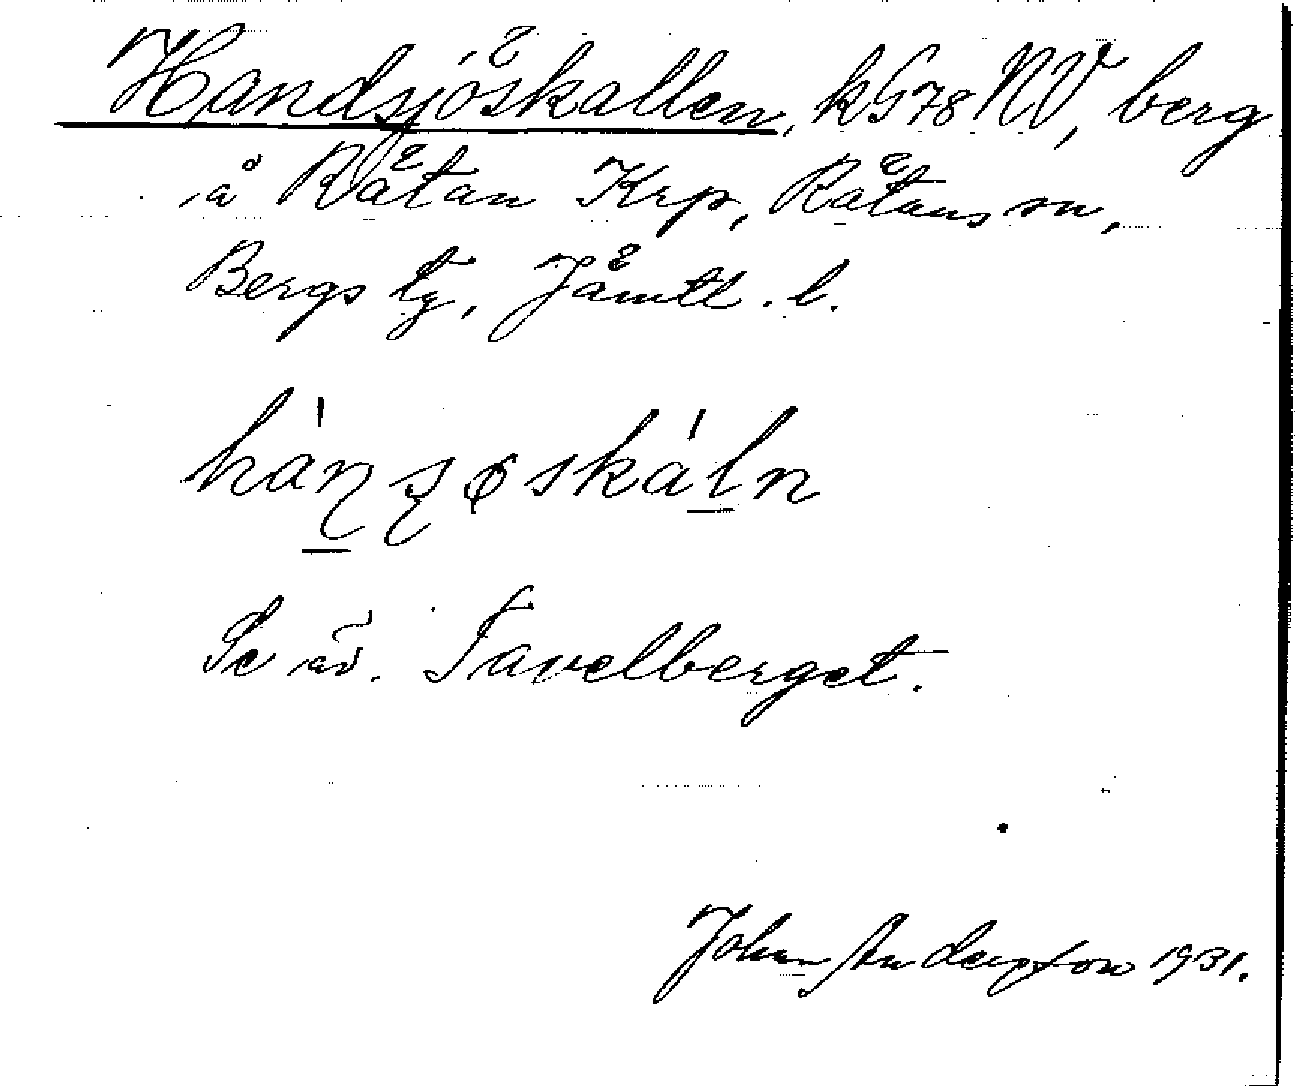 Handsjöskallen, kG78 NV, berg
å Rätan Krp, Rätans sn,
Bergs tg, Jämtl. l.
hánʂøskáln
Se äv. Tavelberget.
Johan Anderson 1931.